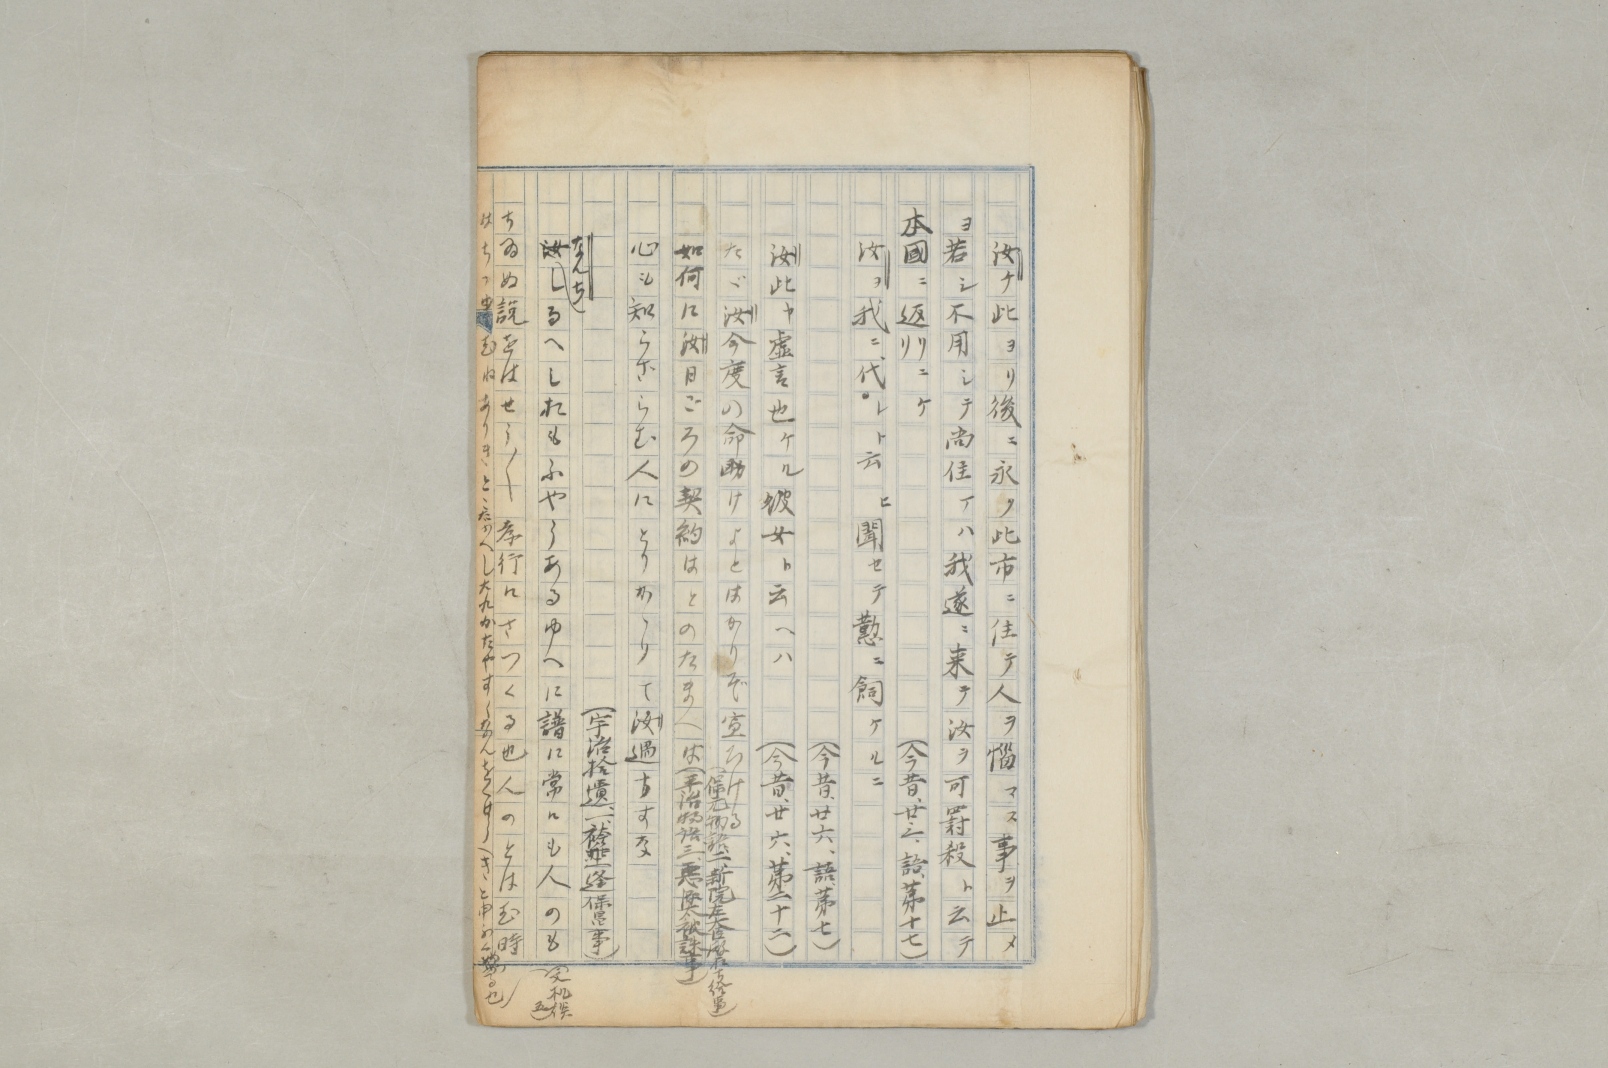 汝ケ此ヨリ後ニ永ク此市ニ住テ人ヲ惱マス事ヲ止メ
ヨ若シ不用シテ尚住マハ我遂ニ来テ汝ヲ可罸殺ト云テ
本國ニ返リニケリ(今昔、廿三、語、第十七)
汝ヲ我ニ代レト云ヒ聞セテ懃ニ飼ケルニ
(今昔、廿六、語、第七)
汝此ヤ虚言也ケル彼女ト云ヘハ(今昔、廿六、第二十二)
たゞ汝今度の命助けよとはかりぞ宣ひける(保元物語二新院左大臣殿
如何に汝日ごろの契約はとのたまへは(平治物語三悪源太誅事)
心も知らざらむ人にとりかゝりて汝過すな
(宇治拾遺、二、袴垂逢保昌事)
なんち
汝しるへしおもふやうあるゆへに譜に常にも人のも
ちゐぬ説をはせう〱孝行にさつくる也人のとは也時